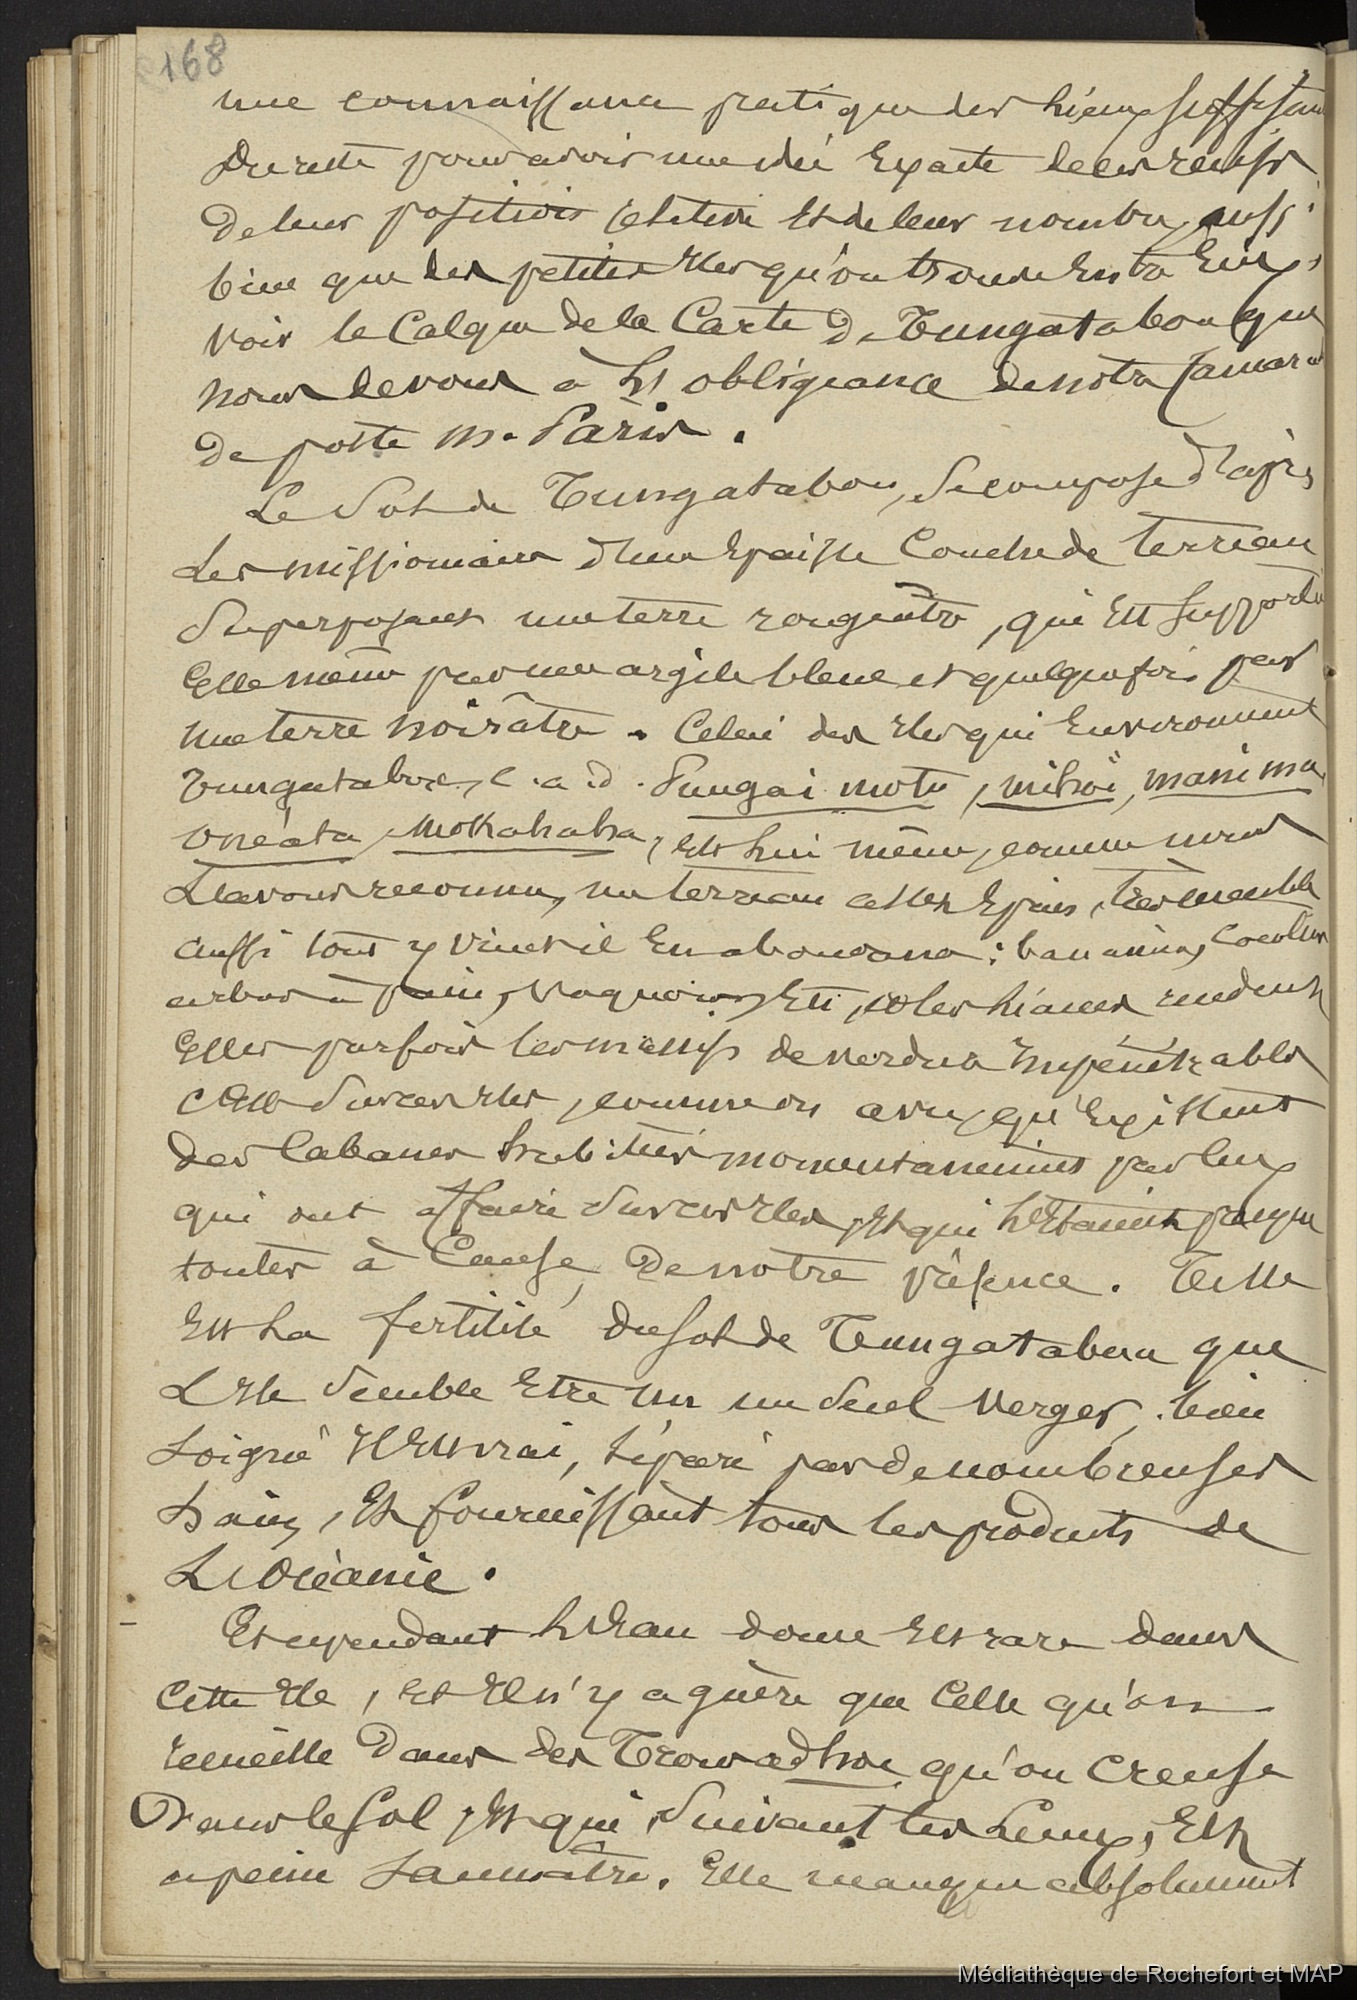 168
une connaissance pratique des lieux suffisante
Du reste pour avoir une idée Exacte de ces récifs
De leur position relative Et de leur nombre, aussi
bien que des petites Iles qu'on trouve Entre Eux,
voir le Calque de la Carte De Tungatabou que
nous devons à L'obligeance de notre Camarade
de poste M. Pâris.
Le Sol de Tungatabou, se compose d'après
Les missionnaires d'une Epaisse Couche de terreau
Superposant une terre rougeâtre, qui Est supportée
Elle même par une argile bleue et quelquefois par
une terre noirâtre. Celui des Iles qui Environnent
Tungatabou, c.a.d. Pungaï motu, , manima,
Onéata, Mokahaha, est lui même, comme nous
L'avons reconnu, un terreau assez Epais, très meuble
aussi tout y vient il En abondance: bananiers, Cocotiers
arbres à pain, vaquois, Etc, et les lianes rendent
Elles parfois les massifs de verdure Impénétrables
C'est Sur ces Iles, comme on a vu, qu'Existent
des Cabanes habitées momentanément par ceux
qui ont affaire Sur ces Iles, Et qui L'Etaient presque
toutes à Cause De notre présence. Telle
Est La fertilité du sol de Tungatabou que
L'Ile Semble Etre un Seul verger, bien
Soigné Il Est vrai, Séparé par de nombreuses
haies, Et fournissant tous les produits de
L'Océanie.
Et cependant L'Eau douce Est rare dans
Cette Ile, Et Il n'y a guère que Celle qu'on
recueille Dans des Trous ad hoc qu'on Creuse
Dans le Sol, Et qui, Suivant les Lieux, Est
a peine Saumâtre. Elle manque absolument
Médiathèque de Rochefort et MAP